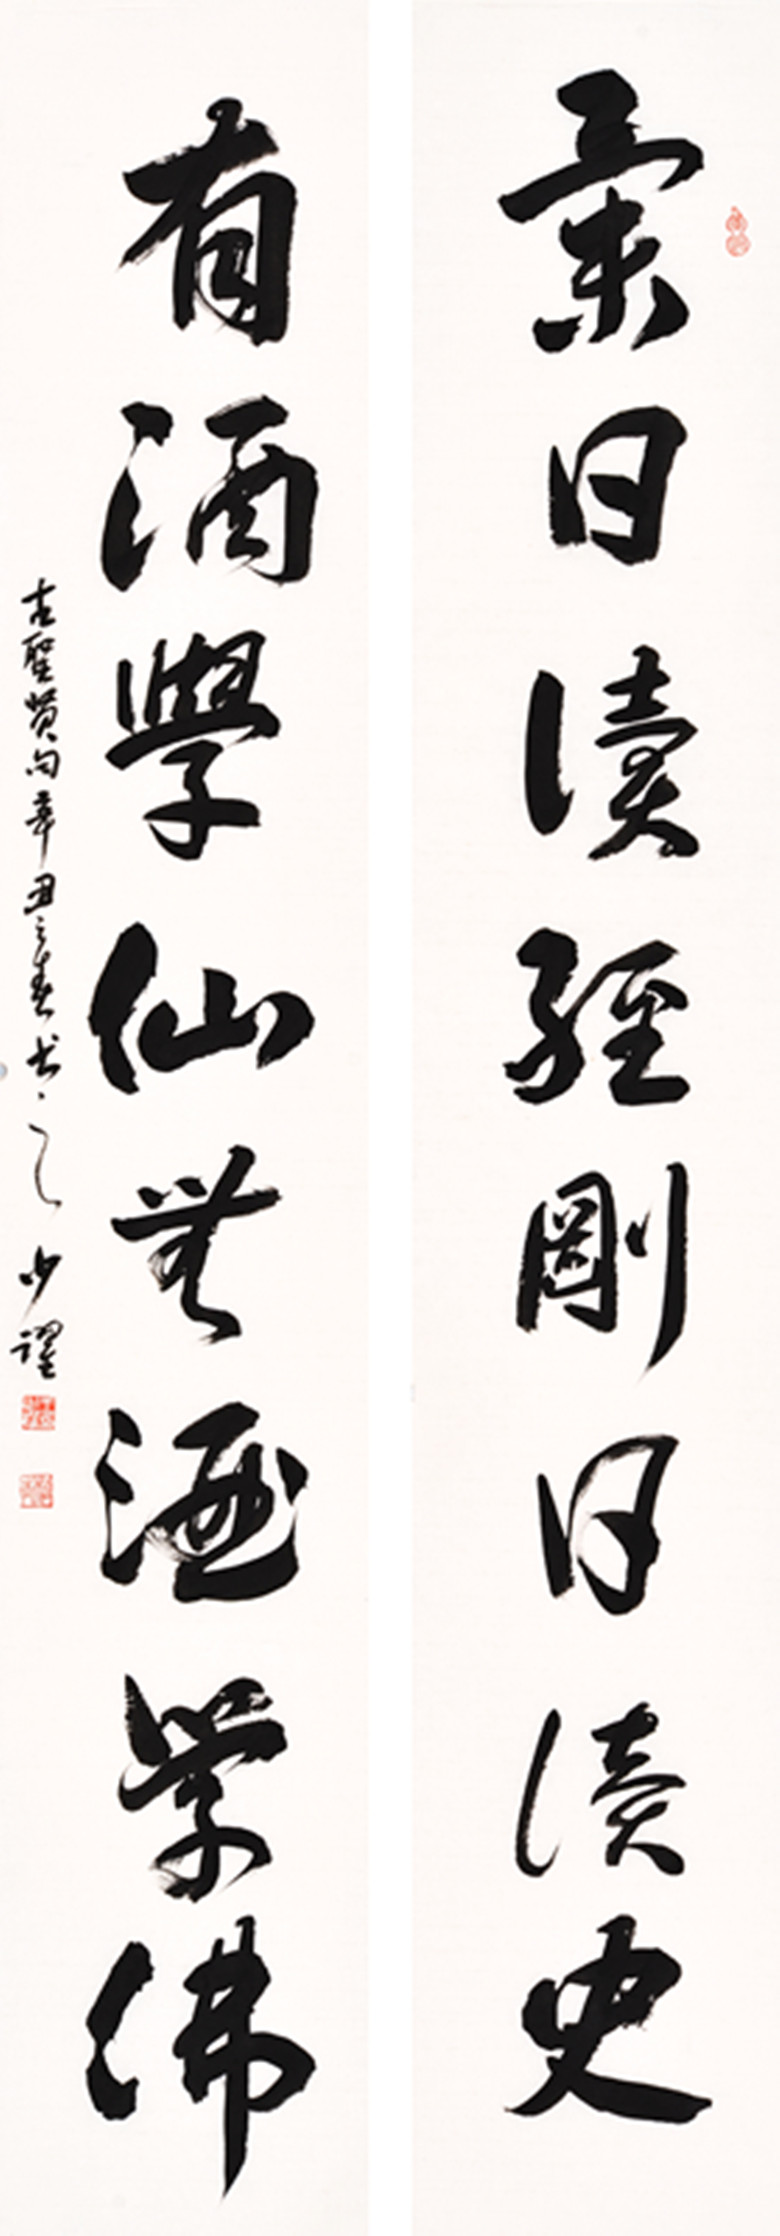 柔日讀經剛日讀史
有酒學仙無酒學佛
古聖賢句辛丑之春书之少